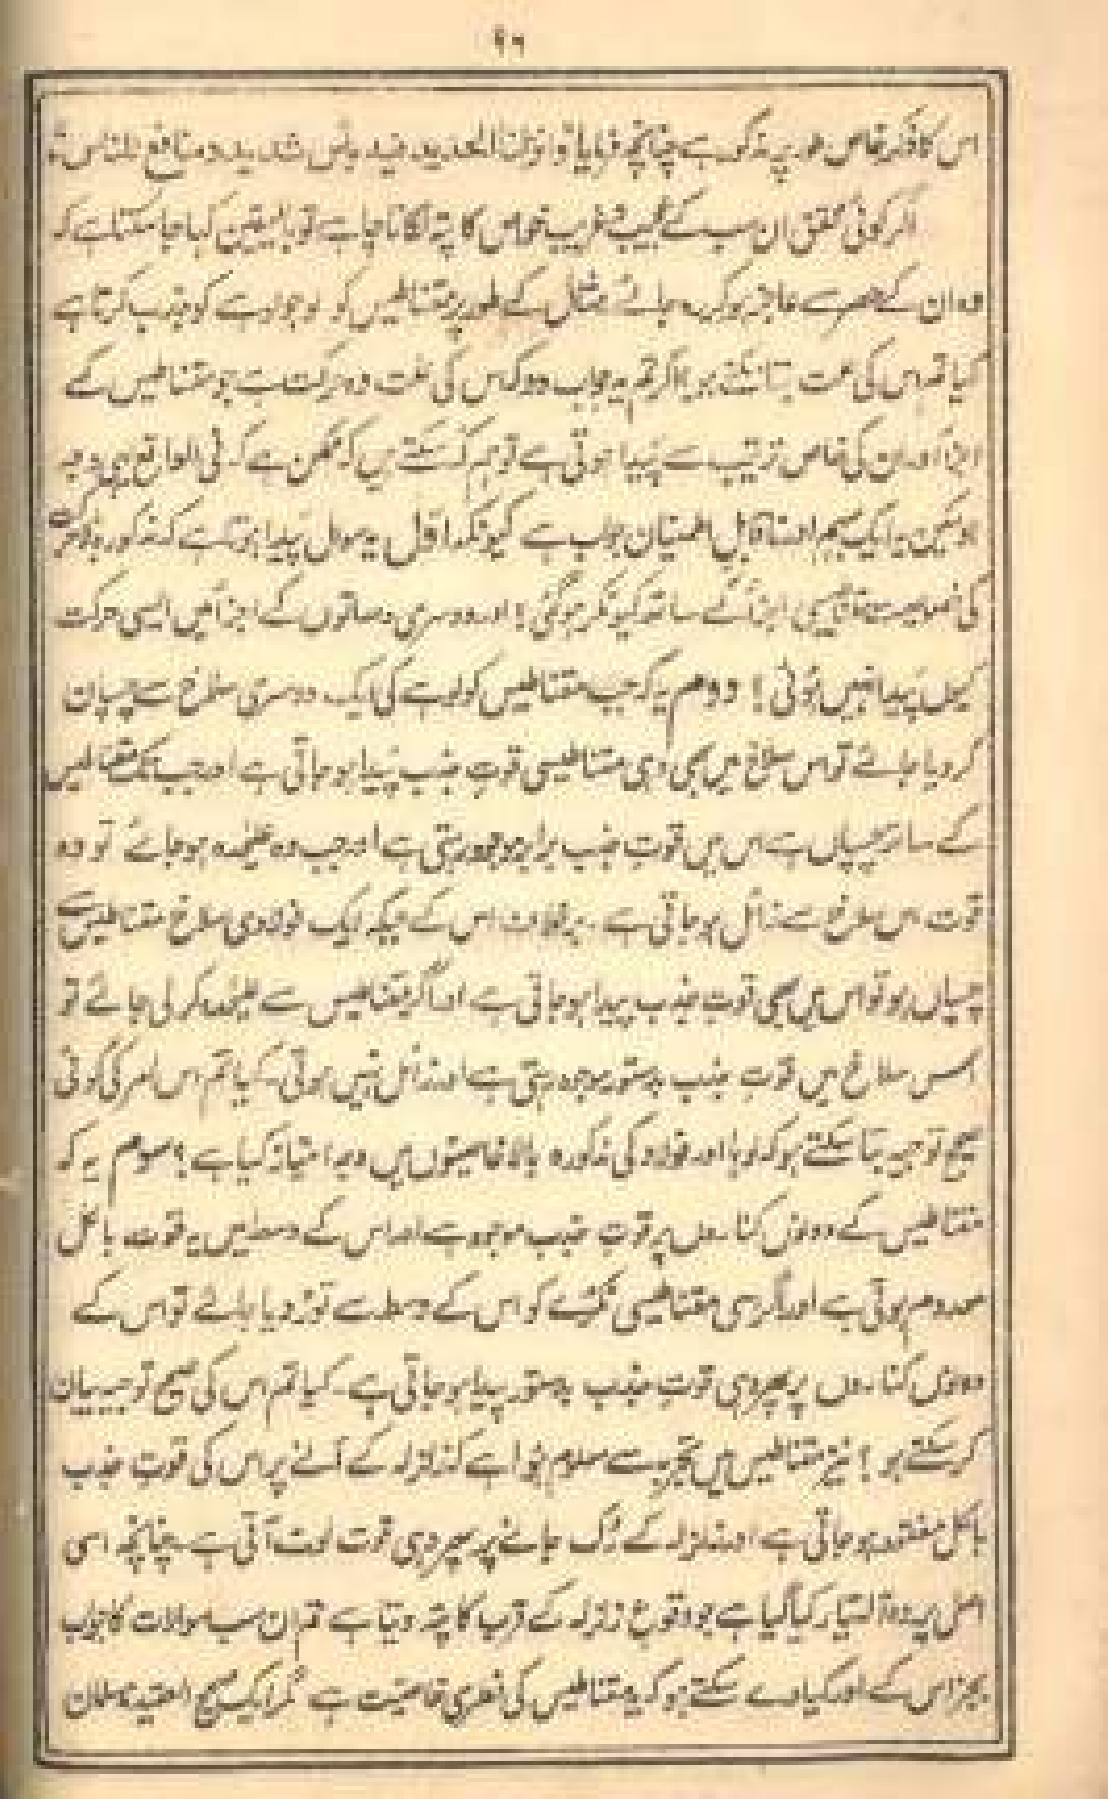 ۹۶
اس کا ذکر خاص طور پر مذکور ہے چنانچہ فرمایا وانزلنا الحدید فیہ باس شدید ومنافع للناس
اگر کوئی محقق ان سب کے عجیب و غریب خواص کا پتہ لگانا چاہے تو بالیقین کہا جا سکتا ہے کہ
وہ ان کے حصر سے عاجز ہو کر رہ جائے مثال کے طور پر مقناطیس کو لو جو لوہے کو جذب کرتا ہے
کیا تم اس کی علت بتا سکتے ہو؟ اگر تم یہ جواب دو کہ اس کی علت وہ حرکت ہے جو مقناطیس کے
اجزا اور ان کی خاص ترتیب سے پیدا ہوتی ہے تو ہم کہہ سکتے ہیں کہ ممکن ہے کہ فی الواقع یہی وجہ
ہو لیکن یہ ایک مبہم اور ناقابل اطمنیان جواب ہے کیونکہ اول یہ سوال پیدا ہوتا ہے کہ مذکور بالا حرکت
کی خصوصیت مقناطیسی اجزا کے ساتھ کیونکر ہو گئی؟ اور دوسری دھاتوں کے اجزا میں ایسی حرکت
کیوں پیدا نہیں ہوئی؟ دوم یہ کہ جب مقناطیس کو لوہے کی ایک دوسری سلاخ سے چسپان
کر دیا جائے تو اس سلاخ میں بھی وہی مقناطیسی قوت جذب پیدا ہو جاتی ہے اور جب تک مقناطیس
کے ساتھ چسپاں ہے اس میں قوت جذب برابر موجود رہتی ہے اور جب وہ علیحدہ ہو جائے تو وہ
قوت اس سلاخ سے زائل ہو جاتی ہے۔ برخلاف اس کے جبکہ ایک فولادی سلاخ مقناطیس سے
چسپاں ہو تو اس میں بھی قوت جذب پیدا ہو جاتی ہے اور اگر مقناطیس سے علیحدہ کر لی جائے تو
اس سلاخ میں قوت جذب بدستور موجود رہتی ہے اور زائل نہیں ہوتی۔ کیا تم اس امر کی کوئی
صحیح توجیہ بتا سکتے ہو کہ لوہا اور فولاد کی مذکورہ بالا خاصیتوں میں وجہ امتیاز کیا ہے؟ سوم یہ کہ
مقناطیس کے دونوں کناروں پر قوت جذب موجود ہے اور اس کے وسط میں یہ قوت بالکل
معدوم ہوتی ہے اور اگر اسی مقناطیسی ٹکڑے کو اس کے وسط سے توڑ دیا جائے تو اس کے
دونوں کناروں پر پھر وہی قوت جذب بدستور پیدا ہو جاتی ہے۔ کیا تم اس کی صحیح توجیہ بیان
کر سکتے ہو؟ نیز مقناطیس میں تجربہ سے معلوم ہوا ہے کہ زلزلہ کے آنے پر اس کی قوت جذب
بالکل مفقود ہو جاتی ہے اور زلزلہ کے رُک جانے پر پھر وہی قوت لوٹ آتی ہے۔ چنانچہ اسی
اصل پر وہ آلہ تیار کیا گیا ہے جو وقوع زلزلہ کے قرب کا پتہ دیتا ہے تم ان سب سوالات کا جواب
بجز اس کے اور کیا دے سکتے ہو کہ یہ مقناطیس کی فطری خاصیت ہے مگر ایک صحیح العقیدہ مسلمان